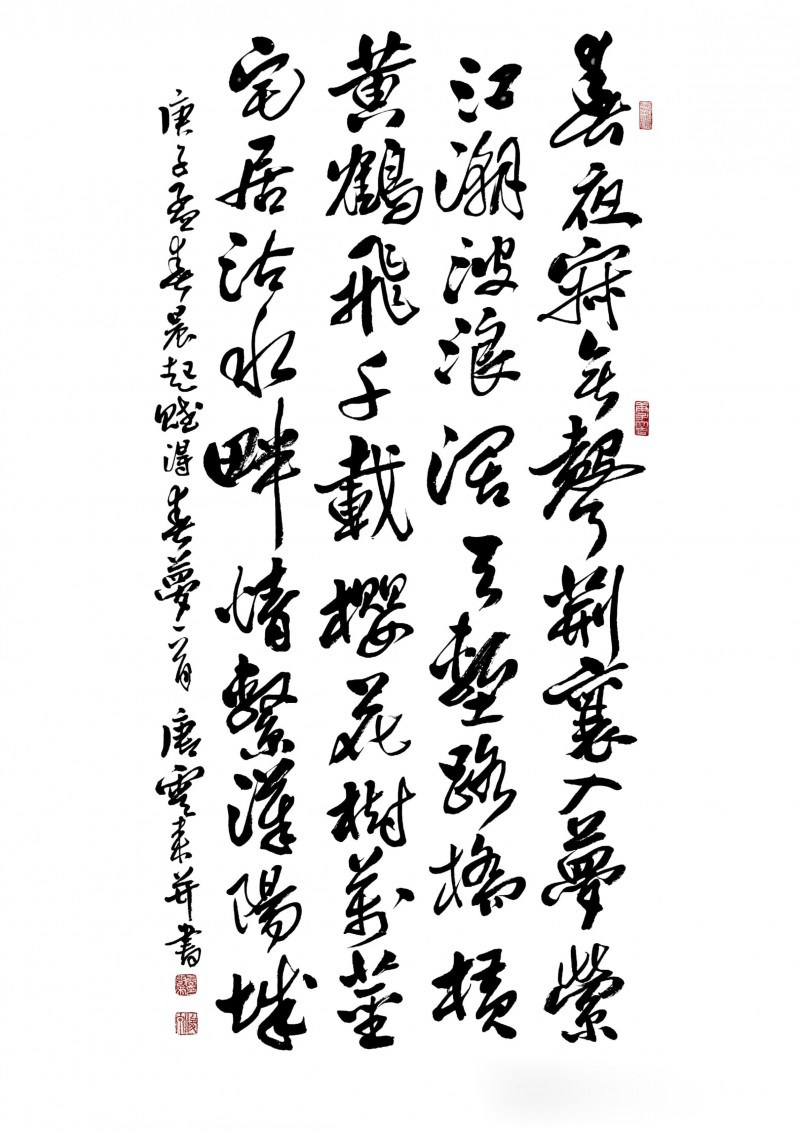 春夜寂無聲荆襄入夢縈
江潮波浪濶天塹路橋横
黄鶴飛千載櫻花樹萬莖
宅居沽水畔情繫漢陽城
庚子孟春晨起賦得春夢一首 唐雲来并書